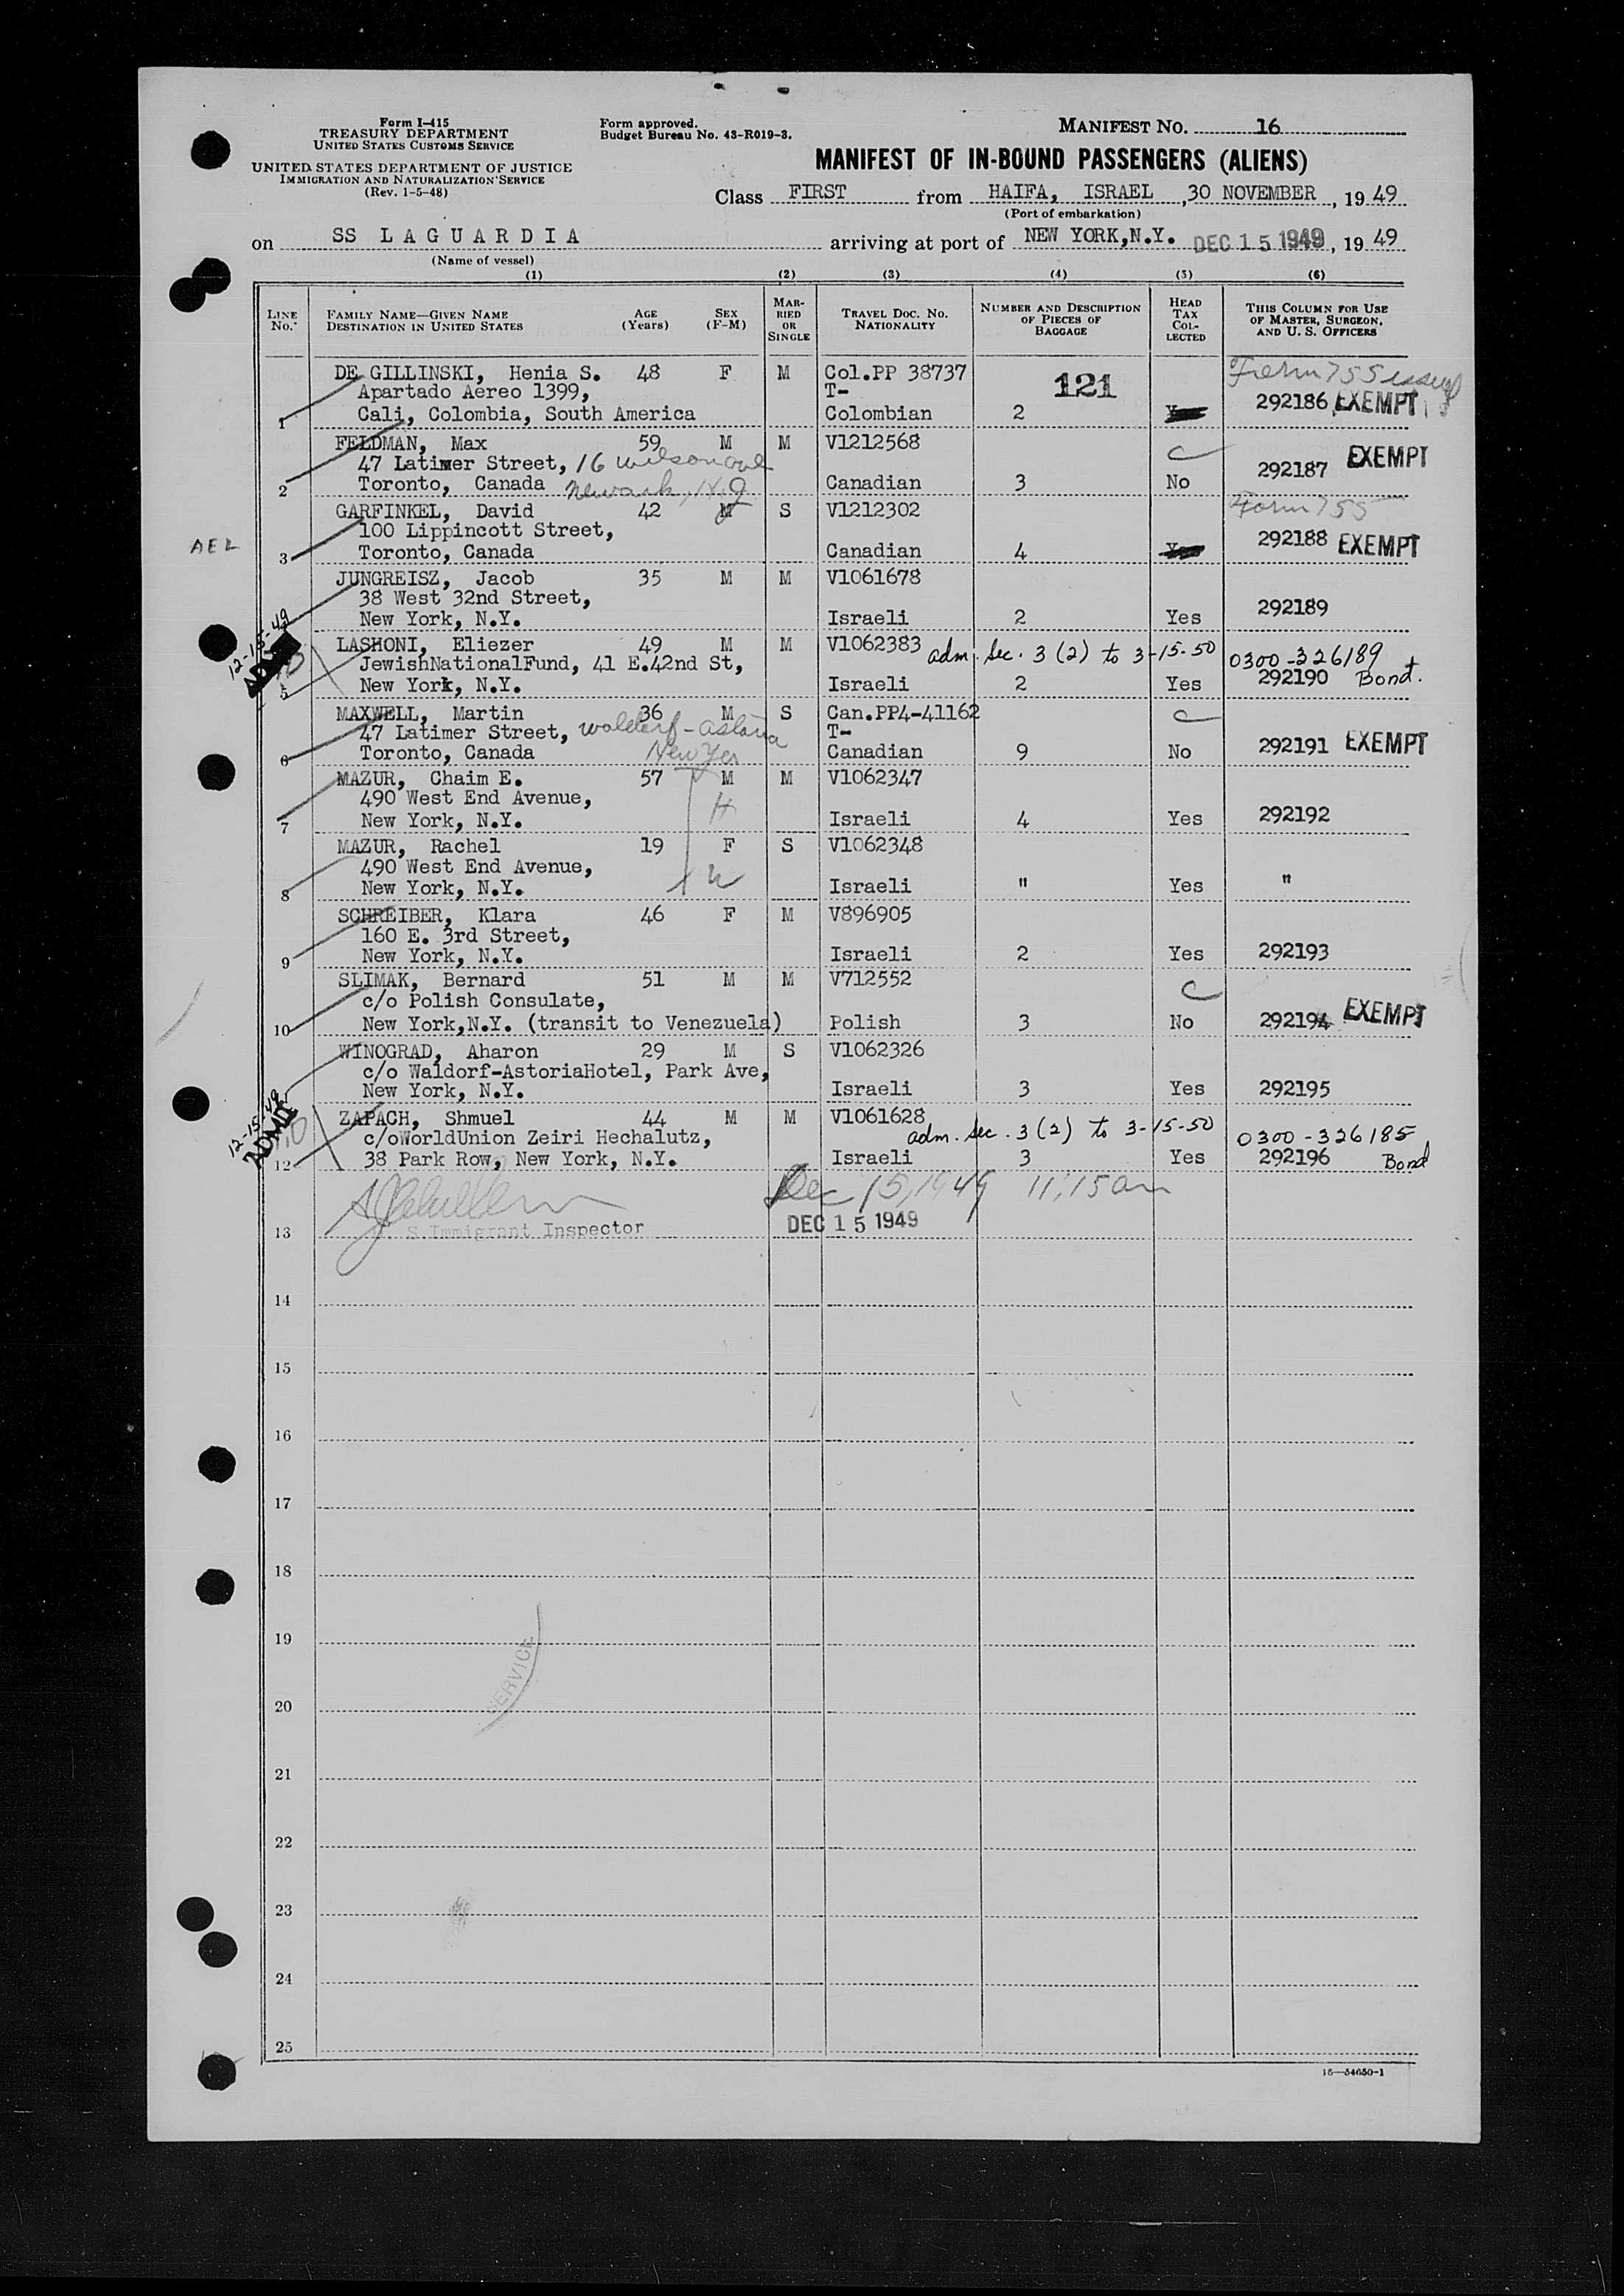 Form I-415
TREASURY DEPARTMENT
UNITED STATES CUSTOMS SERVICE
UNITED STATES DEPARTMENT OF JUSTICE
IMMIGRATION AND NATURALIZATION SERVICE
(Rev. 1-5-48)
Form approved.
Budget Bureau No. 43-R019-3.
MANIFEST NO. 16
MANIFEST OF IN-BOUND PASSENGERS (ALIENS)
Class FIRST from HAIFA, ISRAEL, 30 NOVEMBER, 19 49
(Port of embarkation)
on SS LAGUARDIA arriving at port of NEW YORK,N.Y. DEC 15 1949, 19 49
(Name of vessel)
(1) (2) (3) (4) (5) (6)
LINE NO. FAMILY NAME—GIVEN NAME DESTINATION IN UNITED STATES AGE (YEARS) SEX (F-M) MARRIED OR SINGLE TRAVEL DOC. NO. NATIONALITY NUMBER AND DESCRIPTION OF PIECES OF BAGGAGE HEAD TAX COLLECTED THIS COLUMN FOR USE OF MASTER, SURGEON, AND U. S. OFFICERS
DE GILLINSKI, Henia S. 48 F M Col.PP 38737 121 Form 755 issued
Apartado Aereo 1399, T- 292186 EXEMPT
1 Cali, Colombia, South America Colombian 2
FELDMAN, Max 59 M M V1212568 C EXEMPT
47 Latimer Street, 16 Wilson ave 292187
2 Toronto, Canada Newark, N.J Canadian 3 No
GARFINKEL, David 42 M S V1212302 Form 755
100 Lippincott Street, 292188 EXEMPT
AEL 3 Toronto, Canada Canadian 4
JUNGREISZ, Jacob 35 M M V1061678
38 West 32nd Street, 292189
New York, N.Y. Israeli 2 Yes
12-15-49 LASHONI, Eliezer 49 M M V1062383 adm. Sec. 3 (2) to 3-15-50 0300-326189
JewishNationalFund, 41 E.42nd St, 292190 Bond.
5 New York, N.Y. Israeli 2 Yes
MAXWELL, Martin 36 M S Can.PP4-41162 C
47 Latimer Street, Waldorf-Astoria T-
6 Toronto, Canada New Yor Canadian 9 No 292191 EXEMPT
MAZUR, Chaim E. 57 M M V1062347
490 West End Avenue, H
7 New York, N.Y. Israeli 4 Yes 292192
MAZUR, Rachel 19 F S V1062348
490 West End Avenue,
8 New York, N.Y. Israeli " Yes "
SCHREIBER, Klara 46 F M V896905
160 E. 3rd Street,
9 New York, N.Y. Israeli 2 Yes 292193
SLIMAK, Bernard 51 M M V712552 C
c/o Polish Consulate, EXEMPT
10 New York,N.Y. (transit to Venezuela) Polish 3 No 292194
WINOGRAD, Aharon 29 M S V1062326
c/o Waldorf-AstoriaHotel, Park Ave,
New York, N.Y. Israeli 3 Yes 292195
12-15-49 ADMIT ZAPACH, Shmuel 44 M M V1061628
c/oWorldUnion Zeiri Hechalutz, adm. Sec. 3 (2) to 3-15-50 0300-326185
12 38 Park Row, New York, N.Y. Israeli 3 Yes 292196 Bond
Dec 15, 1949 11:15 am
13 S.Immigrant Inspector DEC 15 1949
14
15
16
17
18
19
SERVICE
20
21
22
23
24
25
16—54650-1